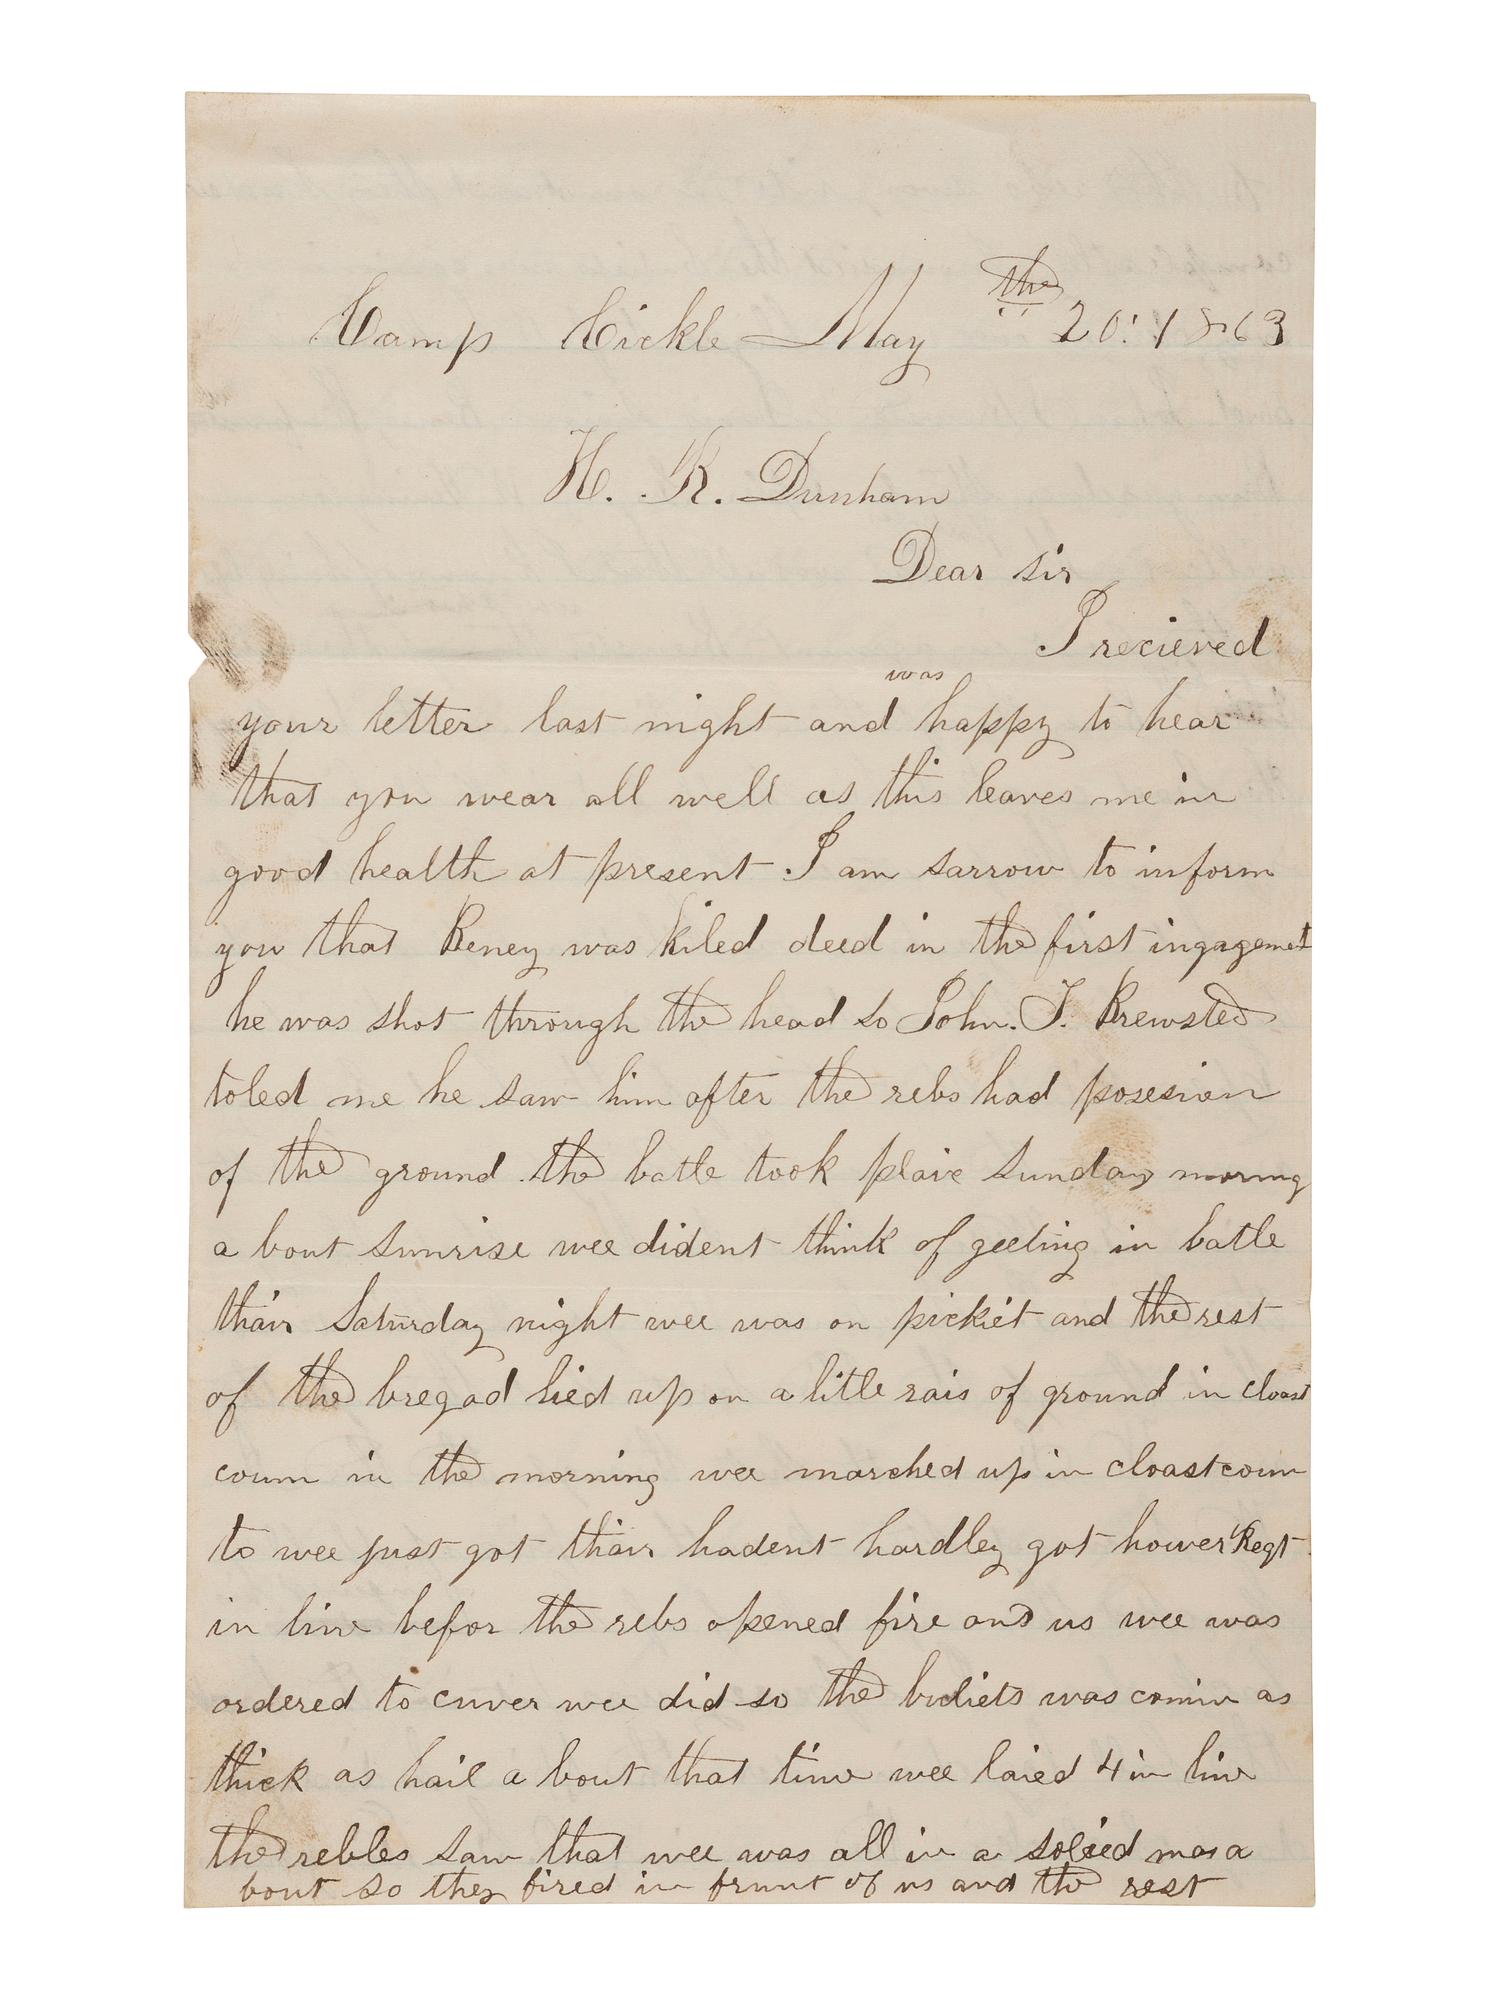 Camp Cickle May the 20: 1863
H. R. Dunham
Dear sir
I recieved
was
your letter last night and happy to hear
that you wear all well as this leaves me in
good health at present I am sarrow to inform
you that Beney was kiled deed in the first ingagemet
he was shot through the head so John. T. Brewsted
toled me he saw him after the rebs had posesion
of the ground the batle took plaic sunday morning
a bout sunrise wee dident think of geeting in batle
thair Saturday night wee was on pickit and the rest
of the bregad lied up on a litle rais of ground in cloast
coum in the morning wee marched up in cloast coum
to wee just got thair hadent hardley got hower Regt
in line befor the rebs opened fire and us wee was
ordered to cuver wee did so the buliets was comin as
thick as hail a bout that time wee laied 4 in line
the rebles saw that wee was all in a solied mas a
bout so they fired in frunt of us and the rest